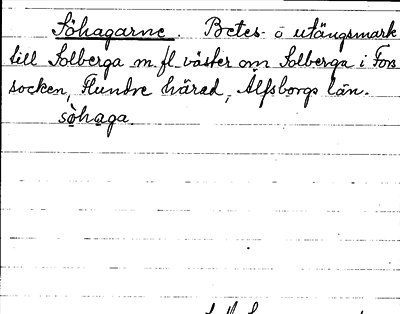 Söhagarne. Betes- o utängsmark
till Solberga m. fl. väster om Solberga i Fors
socken, Flundre härad, Älfsborgs län.
sòhaga.